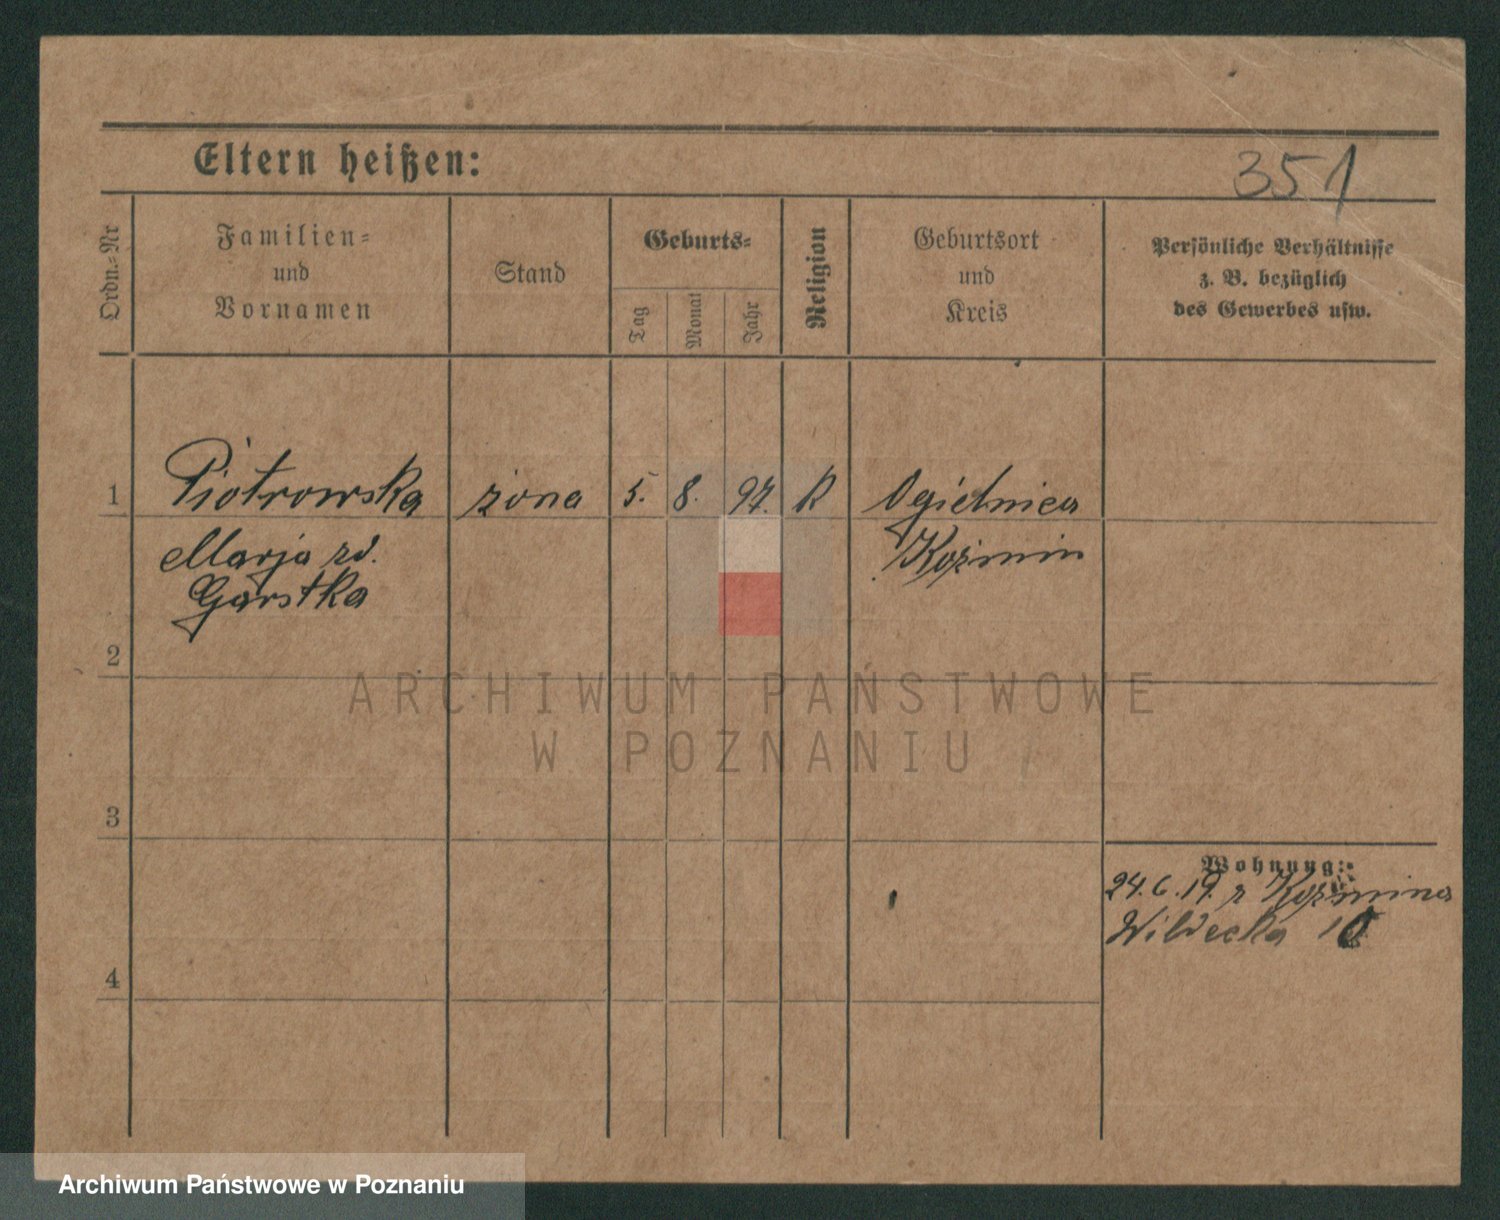 Eltern heißen:
351
Ordn.-Nr
Familien-
und
Vornamen
Stand
Geburts-
Tag
Monat
Jahr
Religion
Geburtsort
und
Kreis
Persönliche Verhältnisse
z. B. bezüglich
des Gewerbes usw.
1 Piotrowska żona 5. 8. 97. R Ogielnica
Marja zd. Koźmin
Garstka
2
ARCHIWUM PAŃSTWOWE
W POZNANIU
3
Wohnung:
24.6.19. z Koźmina
Wildecka 10
4
Archiwum Państwowe w Poznaniu